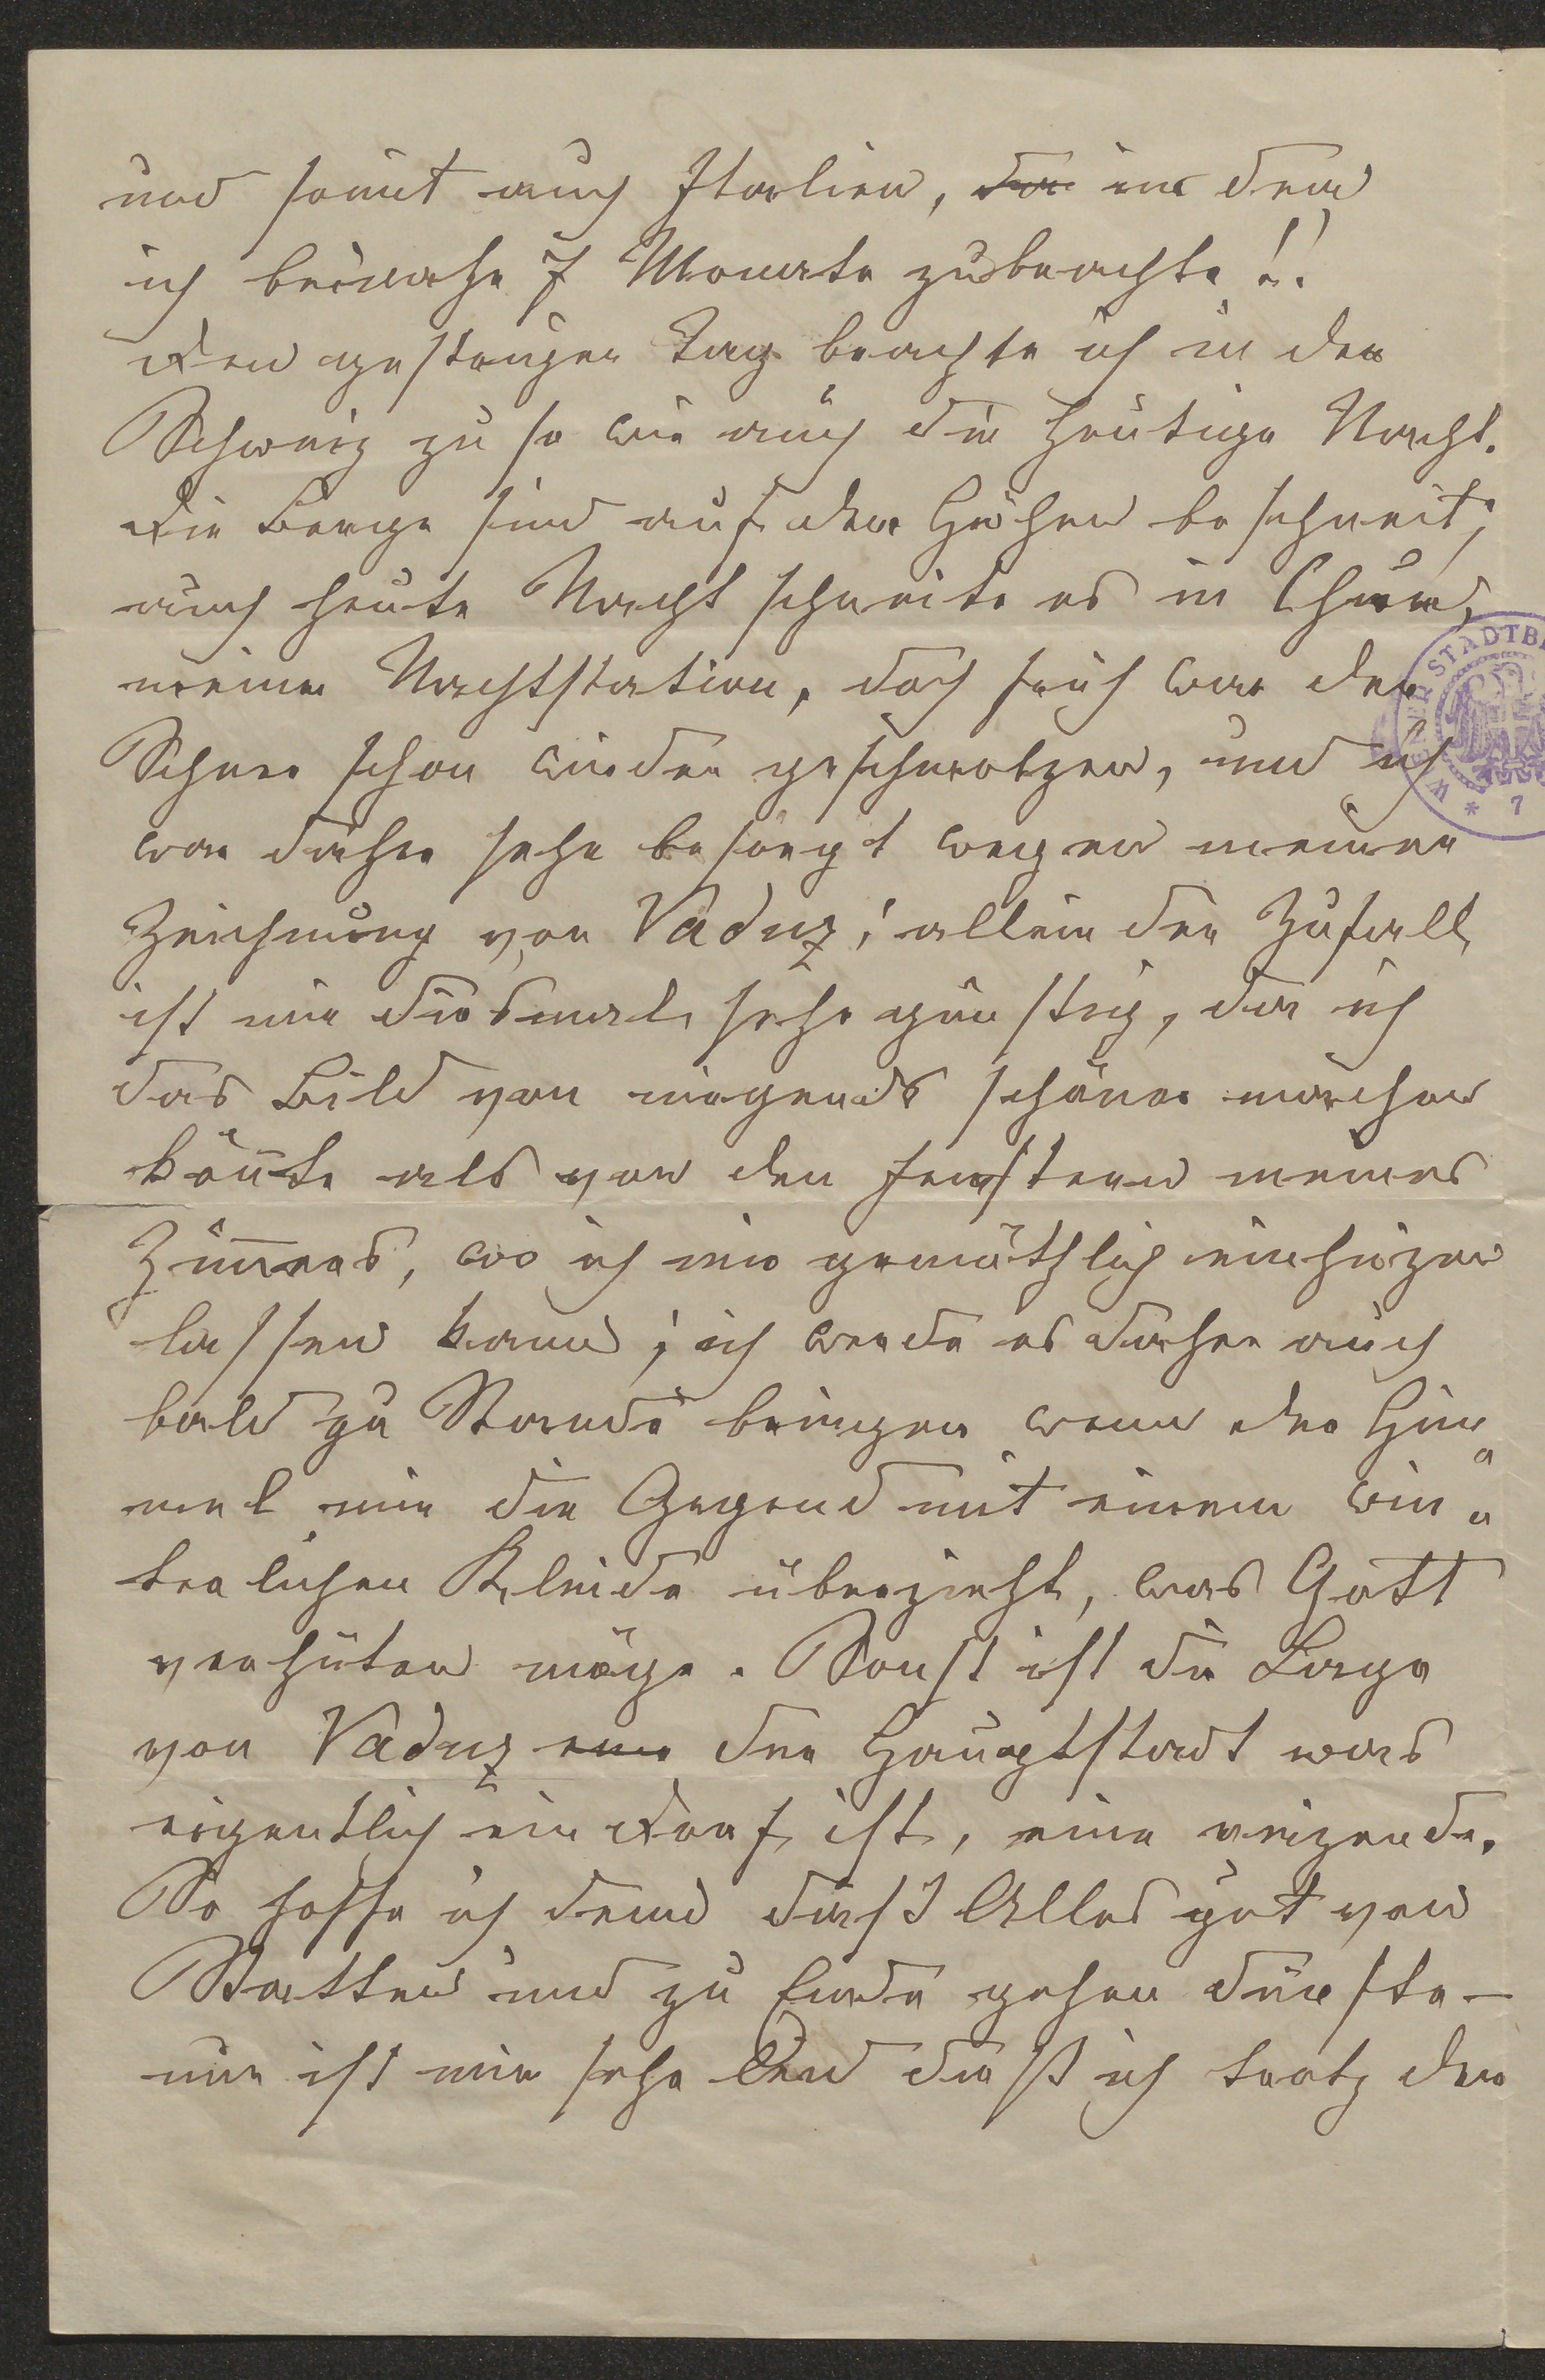 und somit auch Italien, ~~da~~ in dem
ich beinahe 7 Monate zubrachte!!
Den gestrigen Tag brachte ich in der
Schweiz zu so wie auch die heutige Nacht.
Die Berge sind auf den Höhen beschneit;
auch heute Nacht schneite es in Chur,
meiner Nachtstation, doch früh war der
Schnee schon wieder geschmolzen, und ich
war daher sehr besorgt wegen meiner
Zeichnung von Vaduz; allein der Zufall
ist mir diesmal sehr günstig, da ich
das Bild von nirgends schöner machen
könte als von den Fenstern meines
Zimmers, wo ich mir gemüthlich einheizen
lassen kann; ich werde es daher auch
bald zu Stande bringen wenn der Him„
mel mir die Gegend mit einem win„
terlichen Kleide überzieht, was Gott
verhüten möge. Sonst ist die Lage
von Vaduz ~~eine~~ der Hauptstadt was
eigentlich ein Dorf ist, eine reizende.
So hoffe ich denn daß Alles gut von
Statten und zu Ende gehen dürfte –
nur ist mir sehr leid daß ich trotz der
WIENER STADTB
* 7